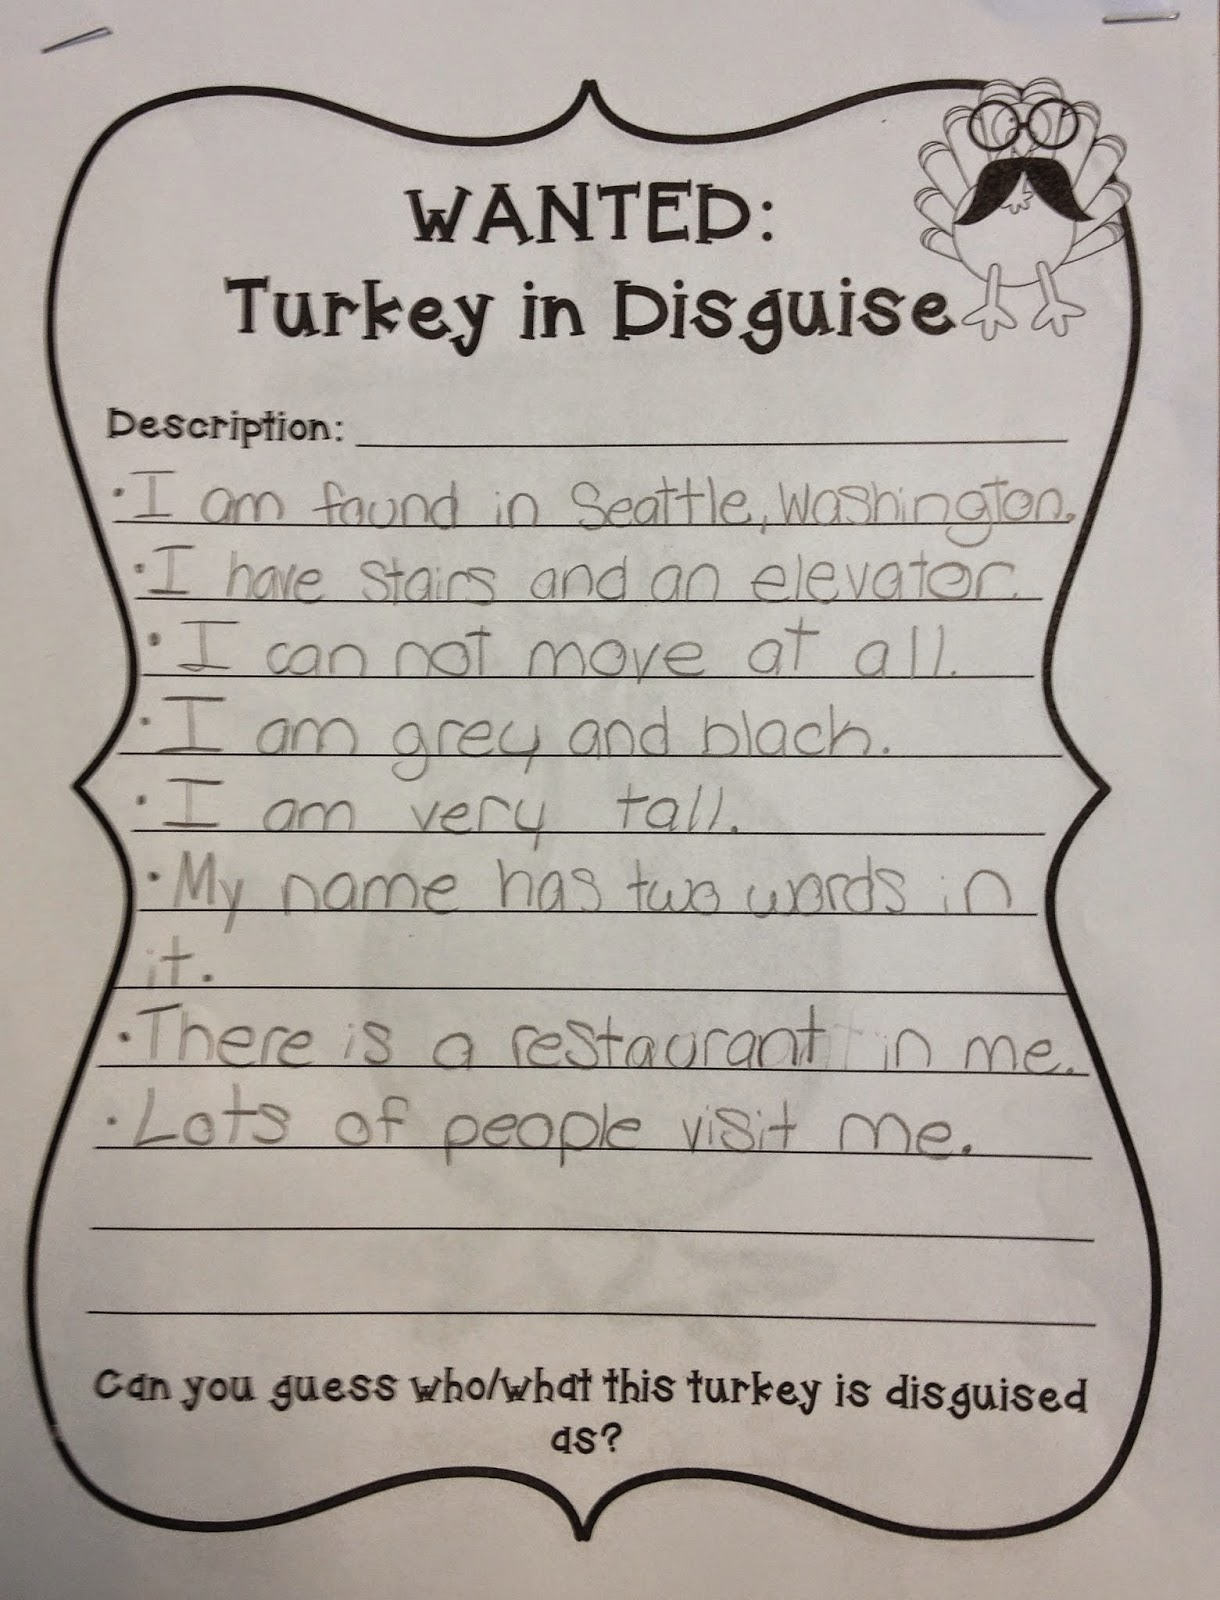 WANTED:
Turkey in Disguise
Description:
• I am found in Seattle, Washington.
• I have stairs and an elevator.
• I can not move at all.
• I am grey and black.
• I am very tall.
• My name has two words in
it.
• There is a restaurant in me.
• Lots of people visit me.
Can you guess who/what this turkey is disguised
as?